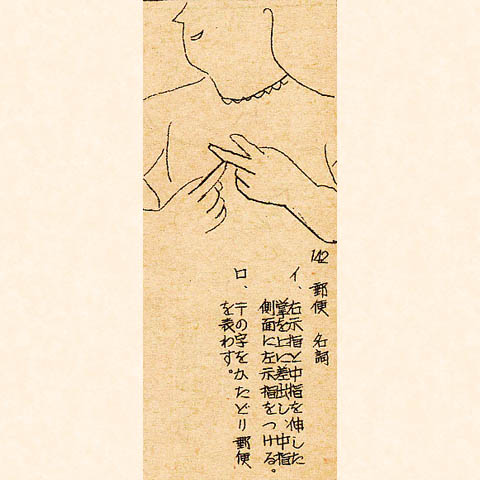 142
郵便 名詞
イ、右示指と中指を伸した
掌を上に差出し、中指
側面に左示指をつける。
ロ、〒の字をかたどり郵便
を表わす。